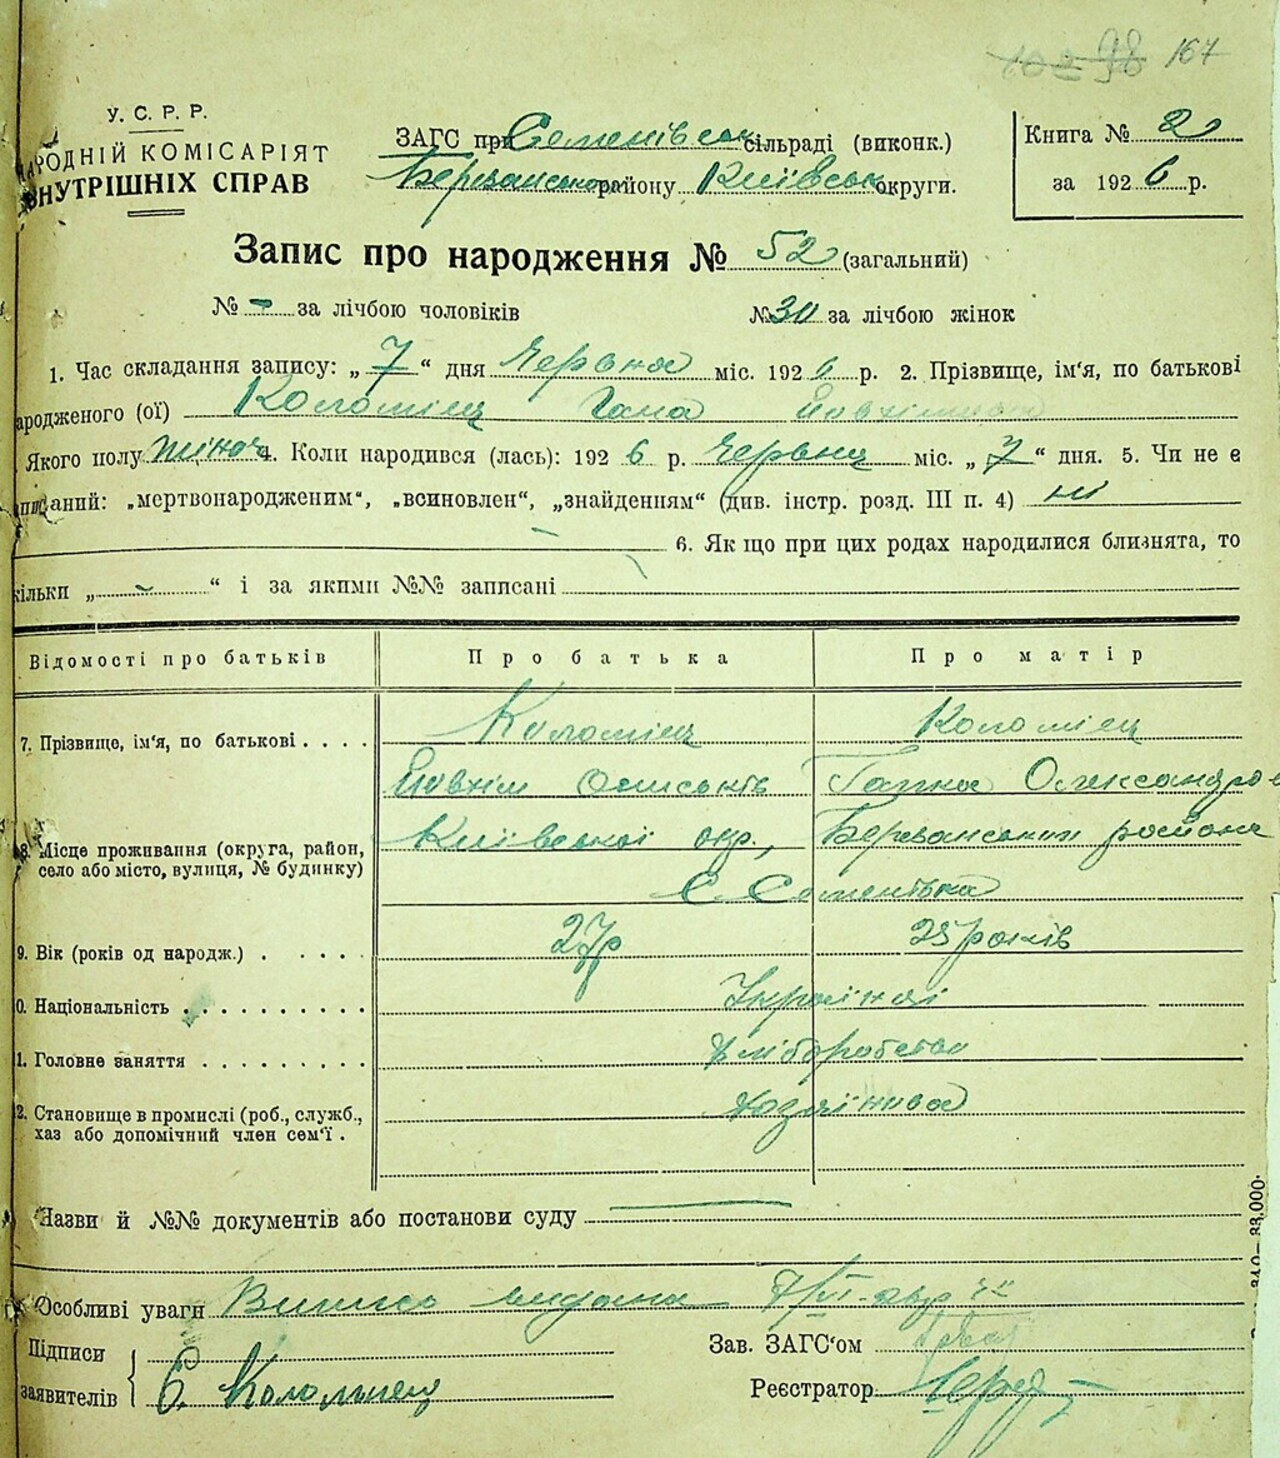 98 167
У. С. Р. Р.
НАРОДНІЙ КОМІСАРІЯТ
ВНУТРІШНІХ СПРАВ
ЗАГС при Семенівськ сільраді (виконк.)
Березанського району Київськ округи.
Книга № 2
за 1926 р.
Запис про народження № 52 (загальний)
№ - за лічбою чоловіків № 30 за лічбою жінок
1. Час складання запису: „ 7 “ дня Червня міс. 1926 р. 2. Прізвище, ім'я, по батькові
ародженого (ої) Коломієц Гана Йовхімівна
Якого полу жіноч 4. Коли народився (лась): 1926 р. Червня міс. „ 7 “ дня. 5. Чи не є
„мертвонародженим“, „всиновлен“, „знайденям“ (див. інстр. розд. III п. 4) ні
6. Як що при цих родах народилися близнята, то
кільки „ - “ і за якими №№ записані
Відомості про батьків Про батька Про матір
7. Прізвище, ім'я, по батькові . . . . Коломієц Коломієц
Йовхім Гапка Олександров
8. Місце проживання (округа, район, село або місто, вулиця, № будинку) Київської окр., Березанський района
С Семенівка
9. Вік (років од народж.) . . . . . 27р 25 років
0. Національність . . . . . . . . . . Українці
1. Головне заняття . . . . . . . . . Хліборобство
2. Становище в промислі (роб., служб.,
хаз або допомічний член сем'ї .
Назви й №№ документів або постанови суду
Особливі уваги Випись видана 7/VI
Підписи
заявителів Є. Коломієц
Зав. ЗАГС'ом
Реєстратор
33.000.